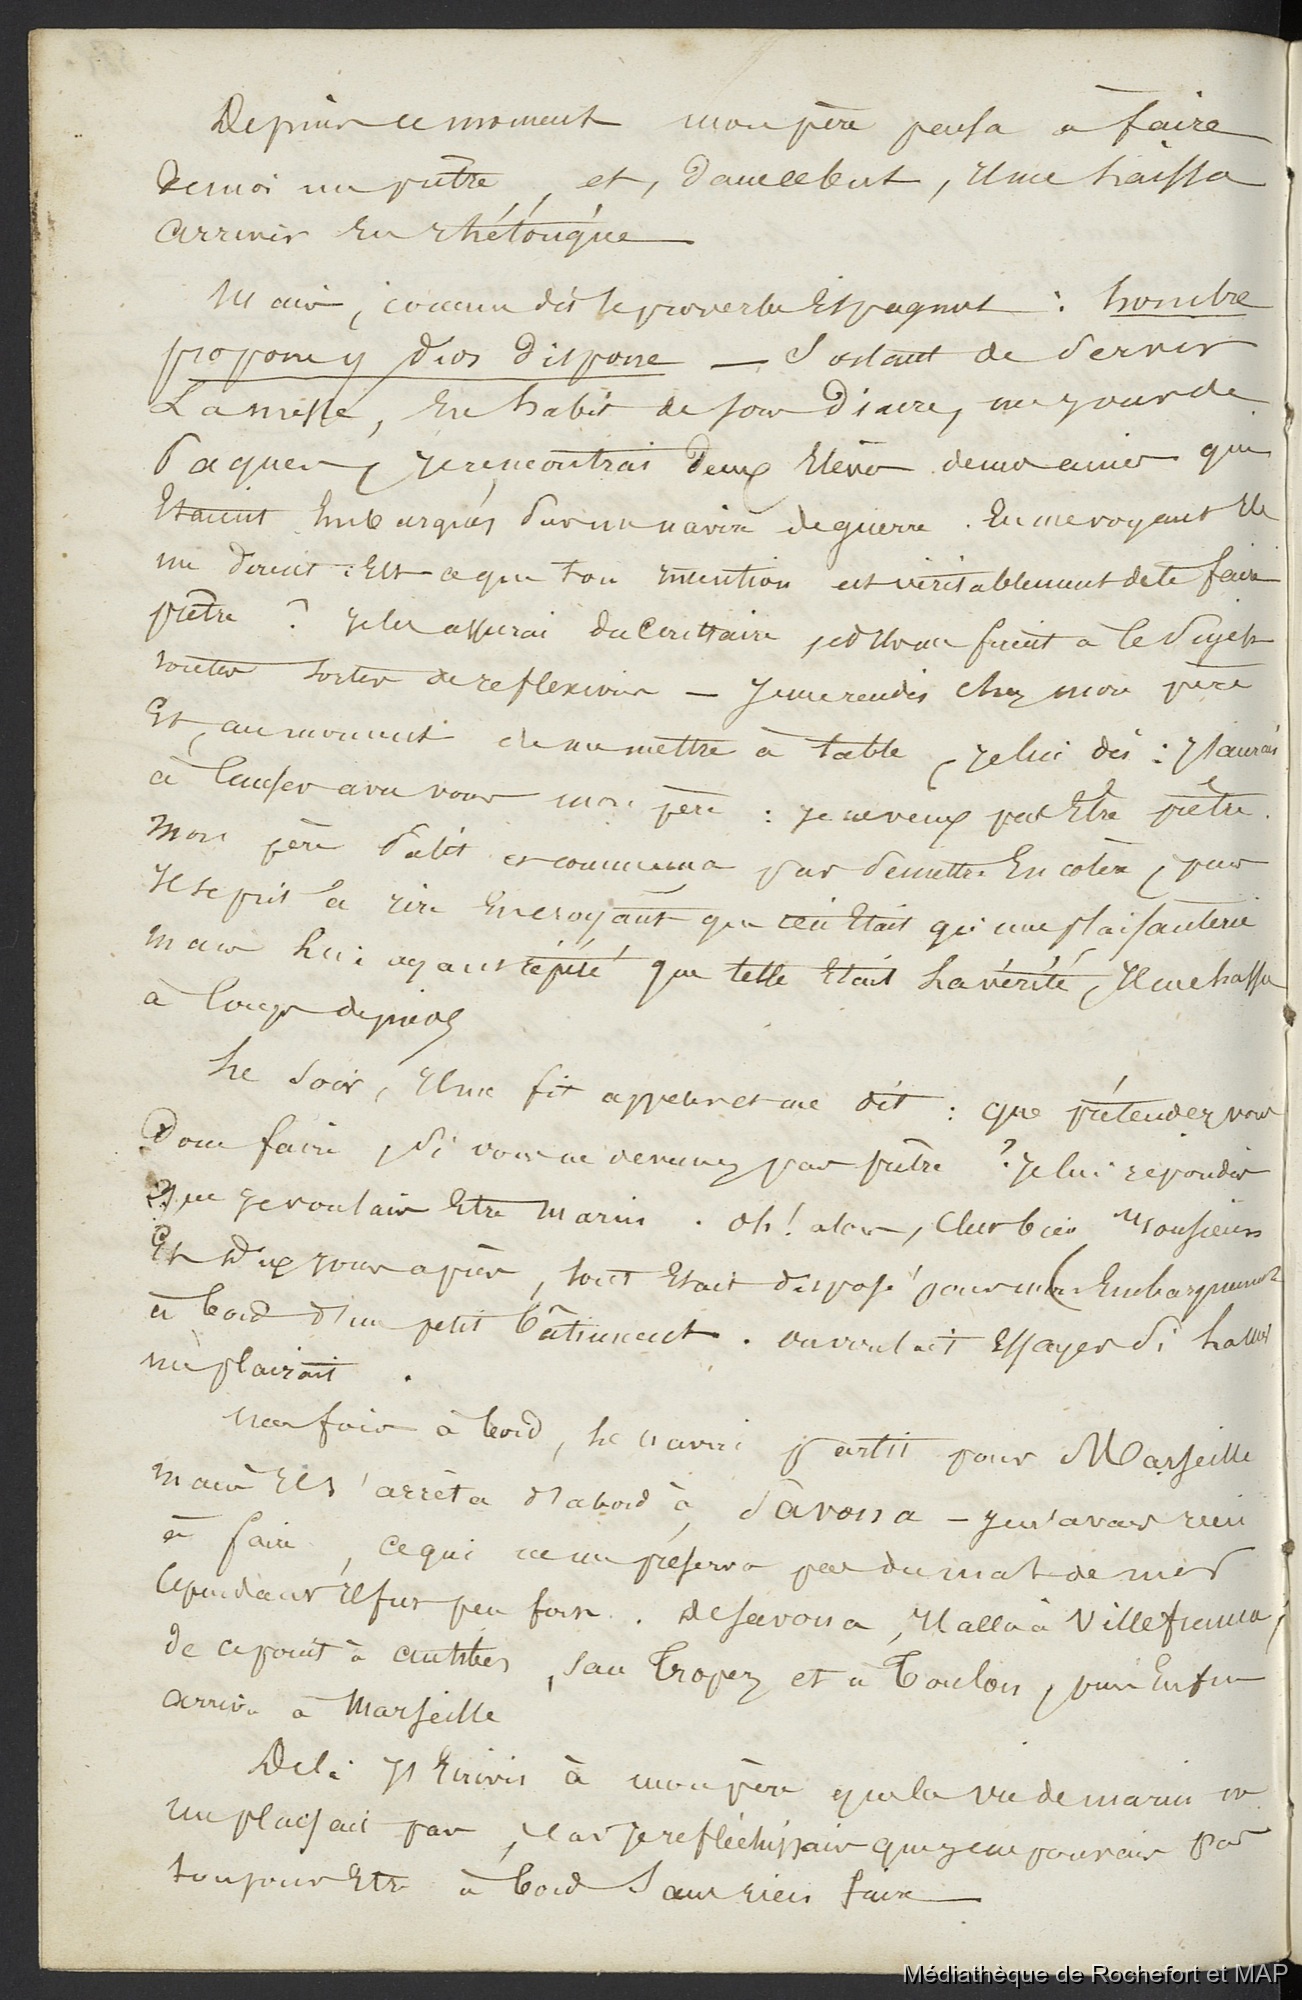 Depuis ce moment mon père pensa à faire
de moi un prêtre, et, dans ce but, il me laissa
arriver en rhétorique
Mais, comme dit le proverbe Espagnol : hombre
propone y Dios dispone — Sortant de servir
La messe, en habit de sous Diacre, un jour de
Paques, je rencontrai deux élèves de mes amis qui
Etaient Embarqués sur un navire de guerre. En me voyant ils
me dirent : Est-ce que ton intention est véritablement de te faire
prêtre ? Je les assurai du contraire, et ils me firent à ce sujet
toutes sortes de reflexions — Je me rendis chez mon père
Et, au moment de me mettre à table, je lui dis : J'aurais
à causer avec vous mon père : je ne veux pas Etre prêtre.
Mon père pâlit et commença par se mettre En colère, puis
Il se prit à rire En croyant que ceci Etait qu'une plaisanterie
Mais lui ayant répété que telle Etait la vérité, Il me chassa
à coups de pieds
Le soir, Il me fit appeler et me dit : que prétendez vous
Donc faire, si vous ne devenez pas prêtre ? Je lui répondis
Que je voulais Etre Marin. Oh ! alors, c'est bien Monsieur
Et Dix jours après, tout Etait disposé pour mon Embarquement
à bord d'un petit bâtiment. on voulait Essayer si la mer
me plairait.
Une fois à bord, le navire partit pour Marseille
Mais Il s'arrêta d'abord à Savona — Je n'avais rien
à faire, ce qui ne me préserva pas du mal de mer
Cependant Il fut peu fort. De Savona, Il alla à Villefranca,
de ce point à antibes, San Tropez et à Toulon, puis Enfin
arriva à Marseille
De là J'Ecrivis à mon père que la vie de marin ne
me plaisait pas, car je reflechissais que je ne pouvais pas
toujours Etre à bord Sans rien faire
Médiathèque de Rochefort et MAP